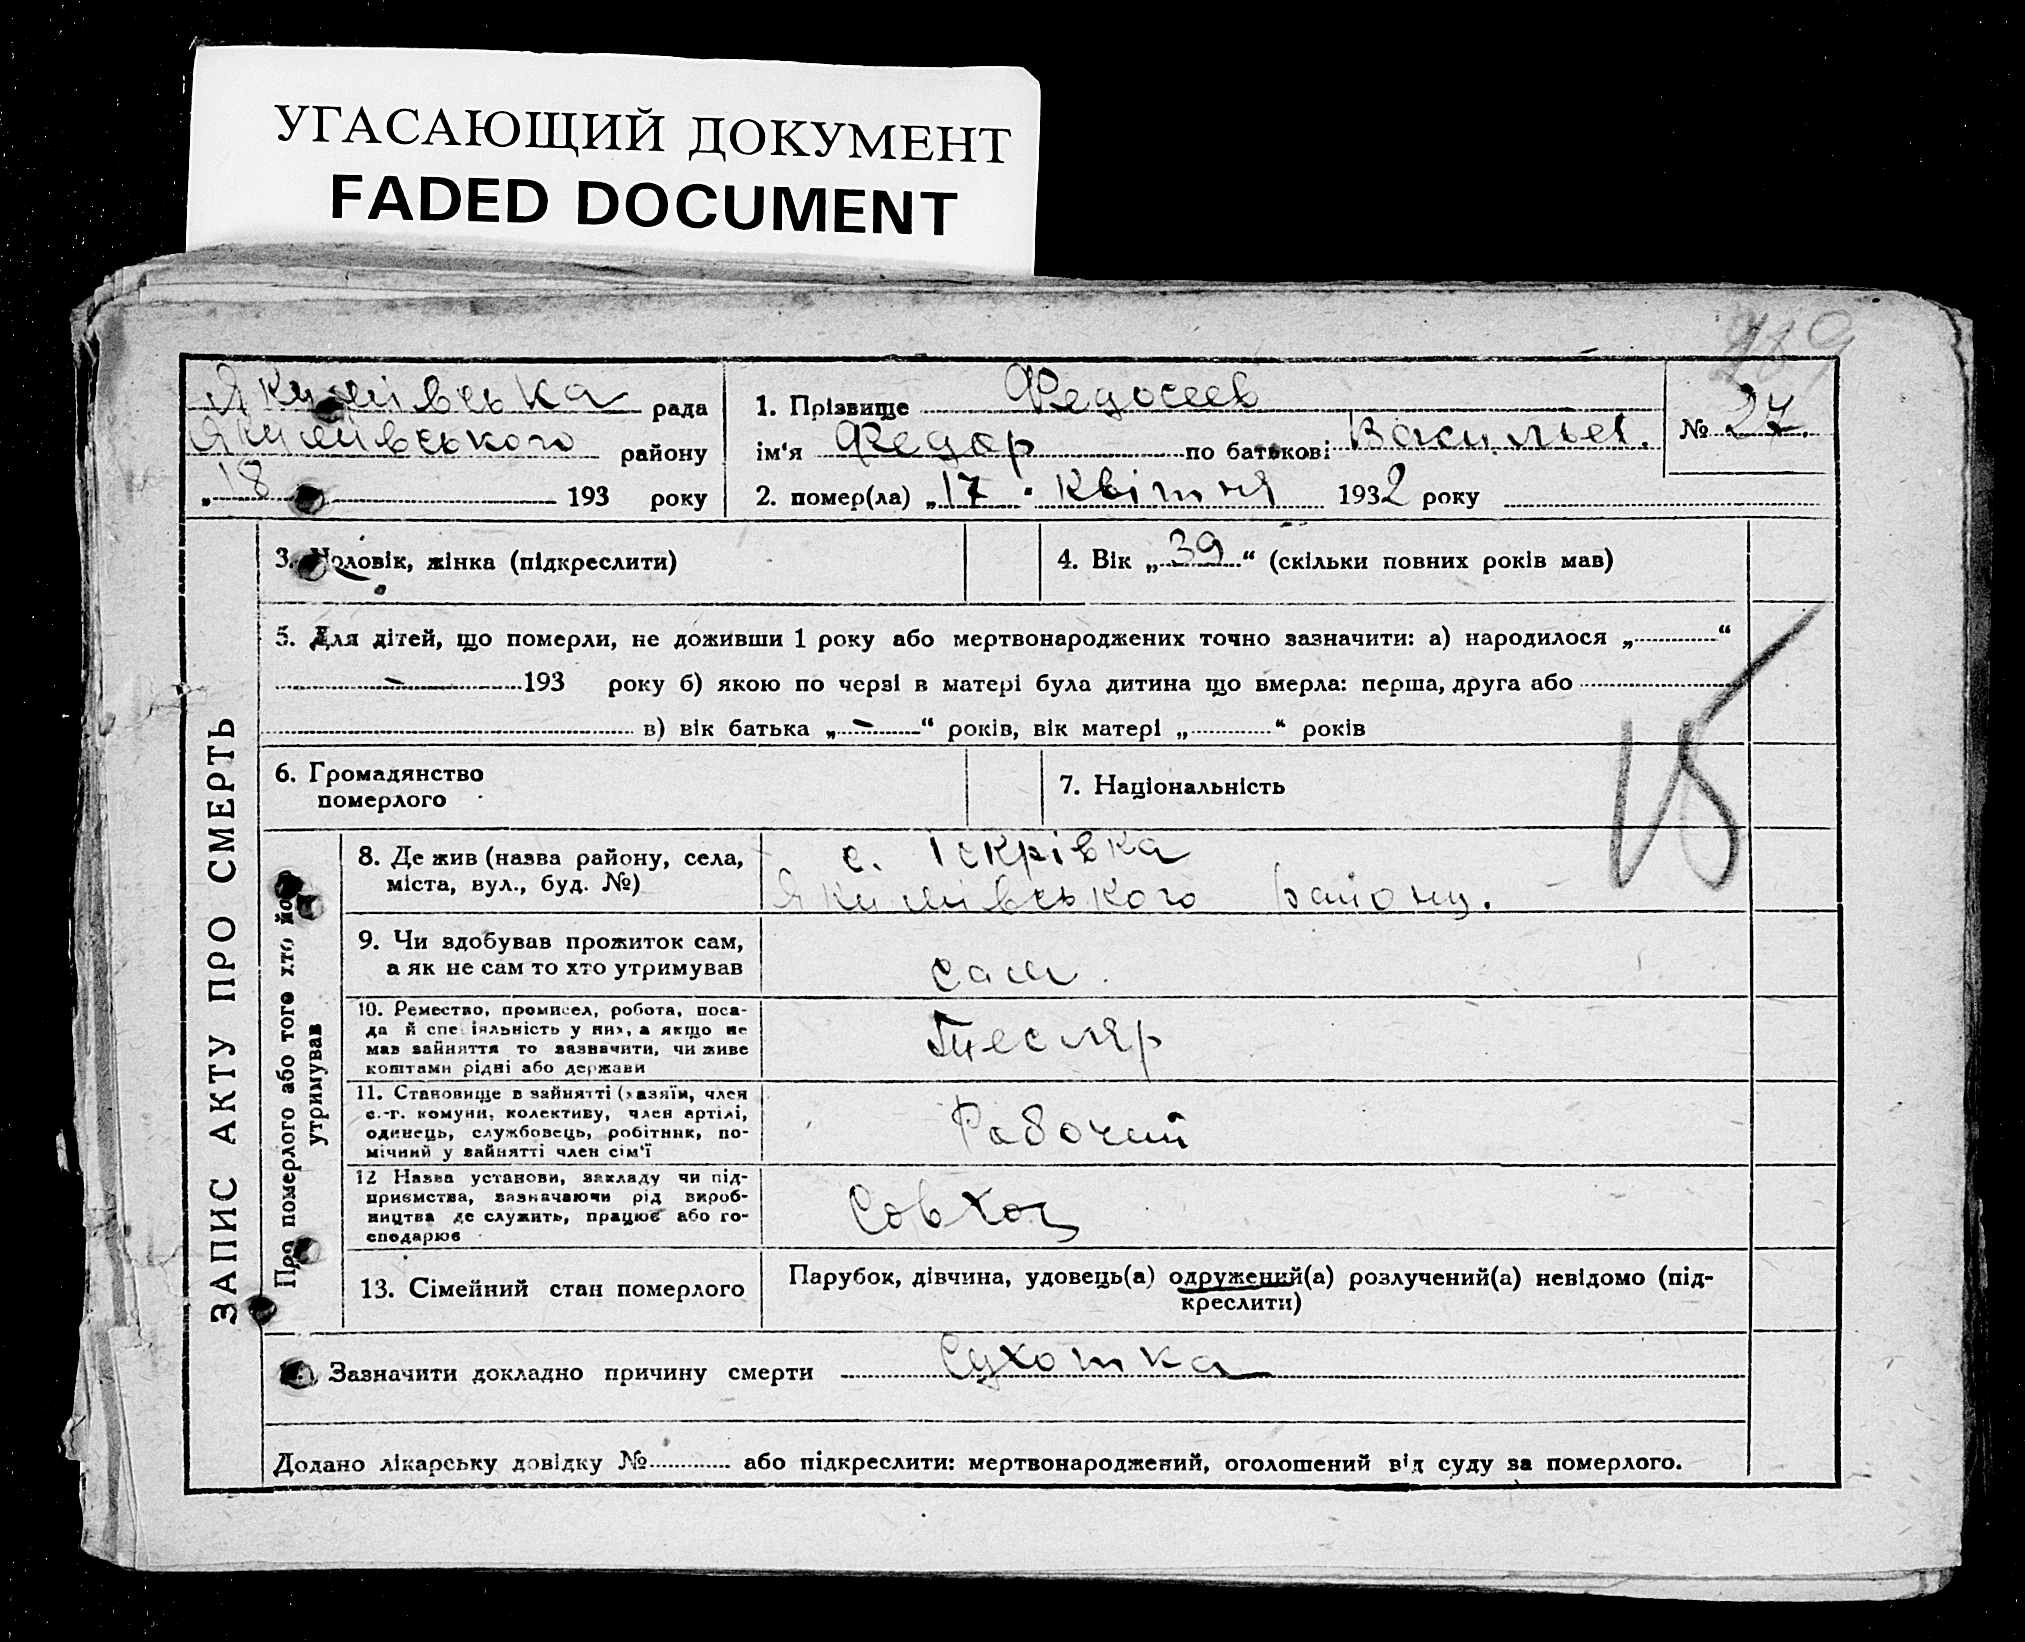 УГАСАЮЩИЙ ДОКУМЕНТ
FADED DOCUMENT
189
Якимівська рада
Якимівського району
„18 193 року
1. Прізвище Федосеев
ім'я Федор по батькові Васильев.
2. помер(ла) „17. квітня 1932 року
№ 27.
ЗАПИС АКТУ ПРО СМЕРТЬ
3. Чоловік, жінка (підкреслити)
4. Вік „39“ (скільки повних років мав)
5. Для дітей, що померли, не доживши 1 року або мертвонароджених точно зазначити: а) народилося „ “
– 193 року б) якою по черзі в матері була дитина що вмерла: перша, друга або
в) вік батька „–“ років, вік матері „ “ років
6. Громадянство
померлого
7. Національність
Про померлого або того хто йо
утримував
8. Де жив (назва району, села,
міста, вул., буд. №)
с. Іскрівка
Якимівського району.
9. Чи здобував прожиток сам,
а як не сам то хто утримував
сам.
10. Ремество, промисел, робота, поса-
да й спеціяльність у них, а якщо не
мав зайняття то зазначити, чи живе
коштами рідні або держави
Тесляр
11. Становище в зайнятті (хазяїн, член
с.-г. комуни, колективу, член артілі,
одинець, службовець, робітник, по-
мічний у зайнятті член сім'ї
Рабочий
12 Назва установи, закладу чи під-
приємства, зазначаючи рід вироб-
ництва де служить, працює або го-
сподарює
Совхоз
13. Сімейний стан померлого
Парубок, дівчина, удовець(а) одружений(а) розлучений(а) невідомо (під-
креслити)
Зазначити докладно причину смерти Сухотка
Додано лікарську довідку № або підкреслити: мертвонароджений, оголошений від суду за померлого.